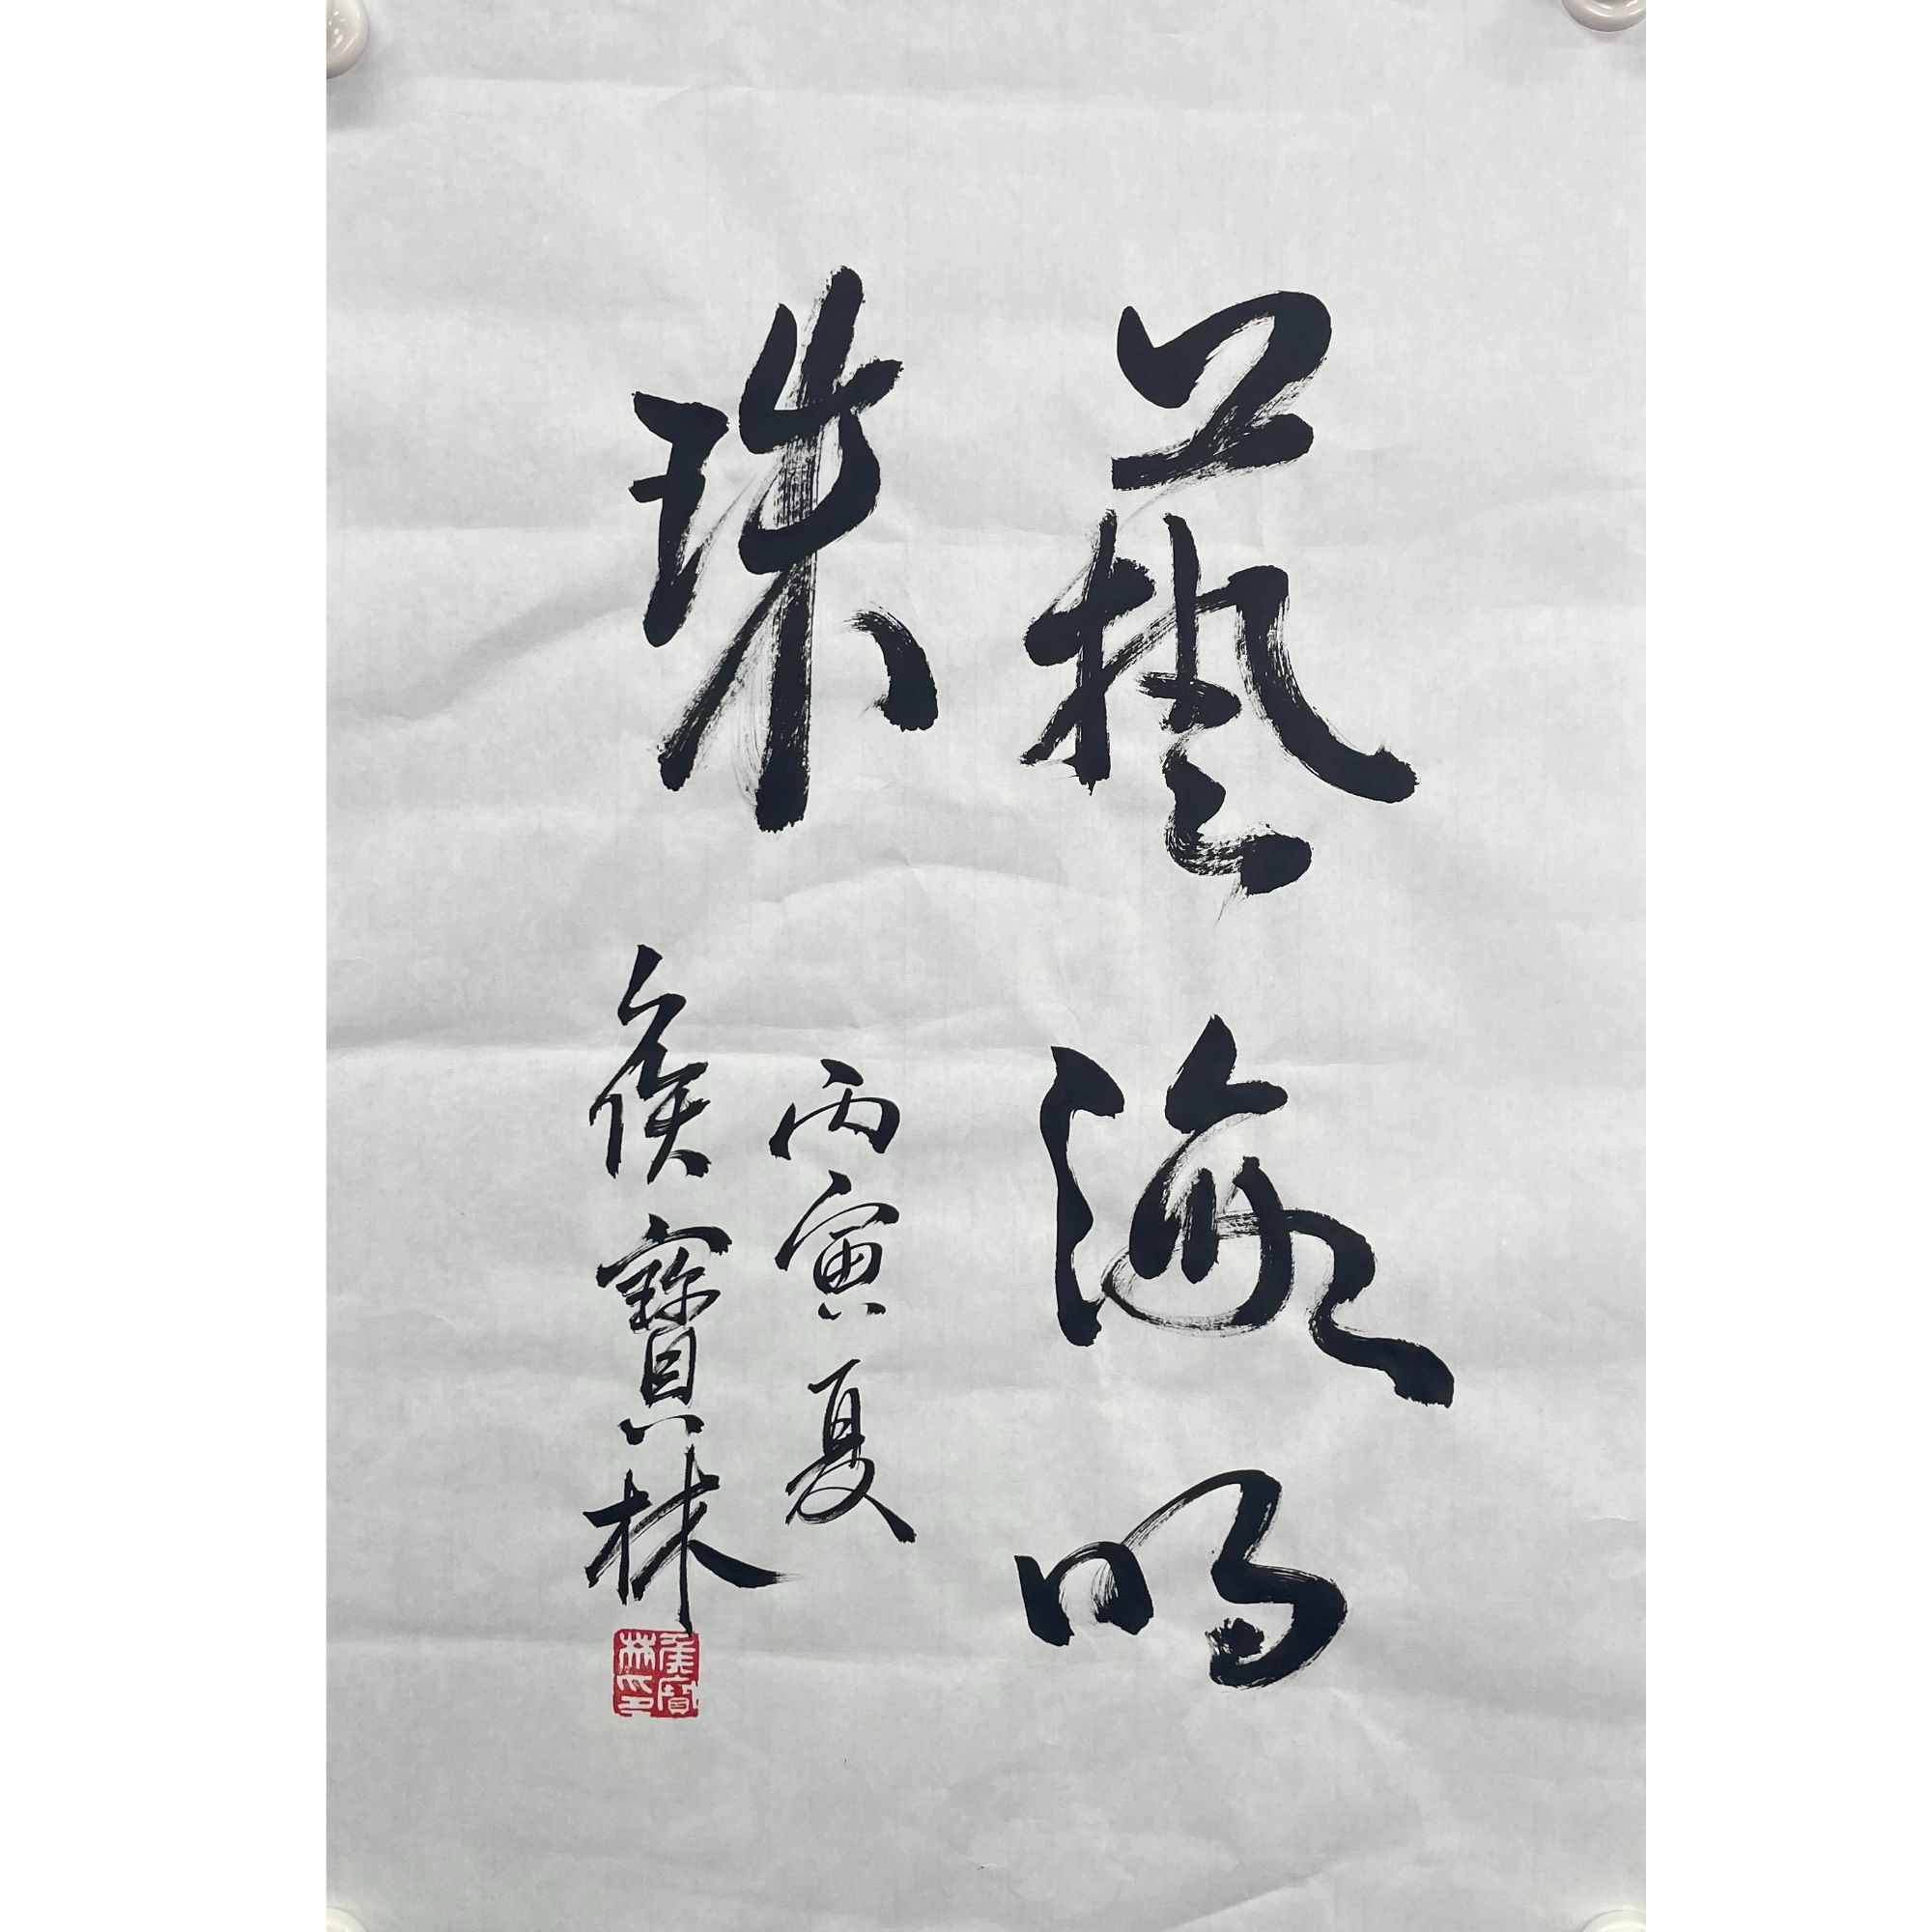 藝海明
珠
丙寅夏
侯寶林
侯寶林印